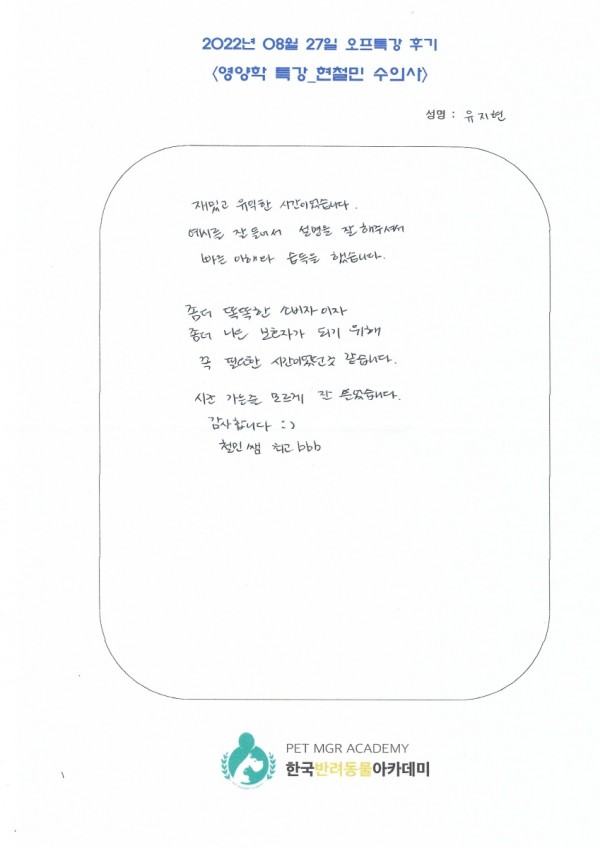 2022년 08월 27일 오프특강 후기
<영양학 특강_현철민 수의사>
성명 : 유지현
재밌고 유익한 시간이었습니다.
예시를 잘 들어서 설명을 잘 해주셔서
빠른 이해과 습득을 했습니다.
좀더 똑똑한 소비자이자
좀더 나은 보호자가 되기 위해
꼭 필요한 시간이었던것 같습니다.
시간 가는줄 모르게 잘 들었습니다.
감사합니다 :)
철민쌤 최고bbb
PET MGR ACADEMY
한국반려동물아카데미